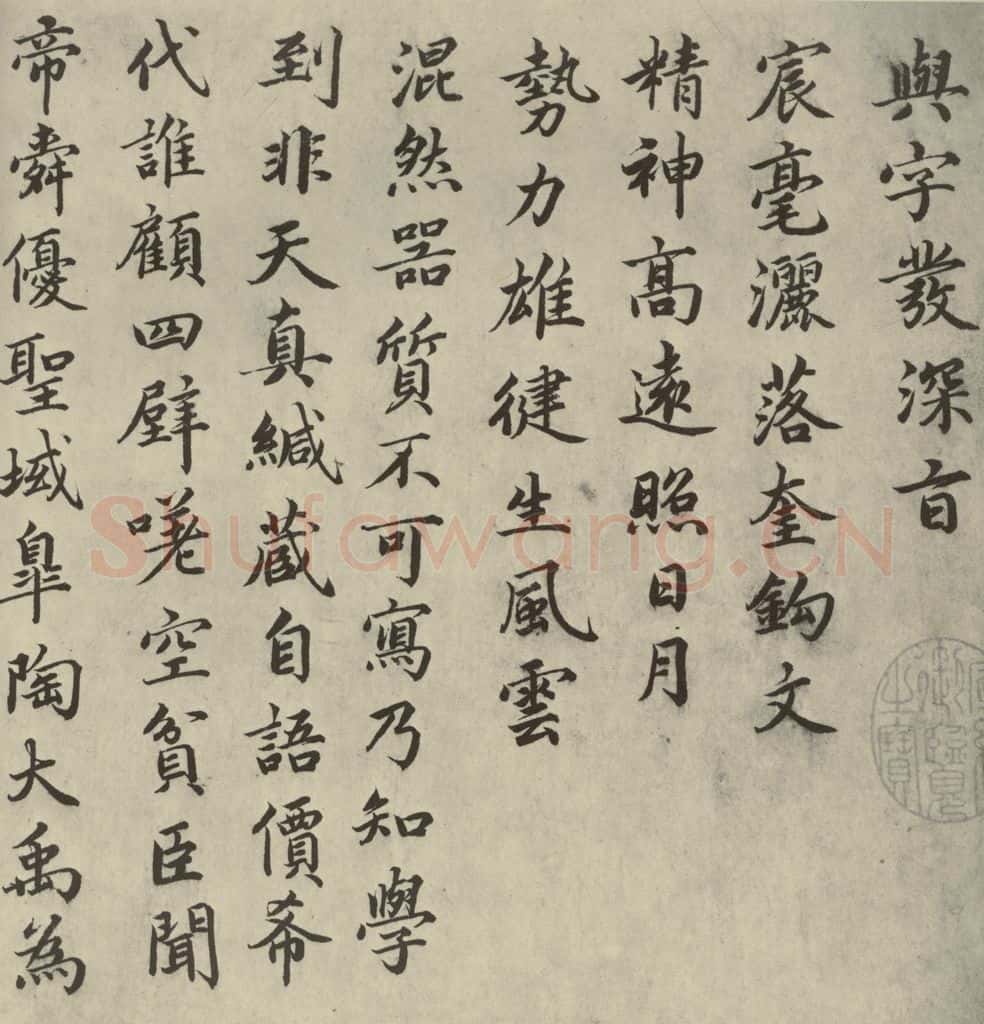 與字發深㫖
宸毫灑落奎鈎文
精神髙遠照日月
勢力雄徤生風雲
混然器質不可寫乃知學
到非天真緘藏自語價希
代誰顧四壁嗟空貧臣聞
帝舜優聖域臯陶大禹為
御覽
之寶
Shufawang.CN